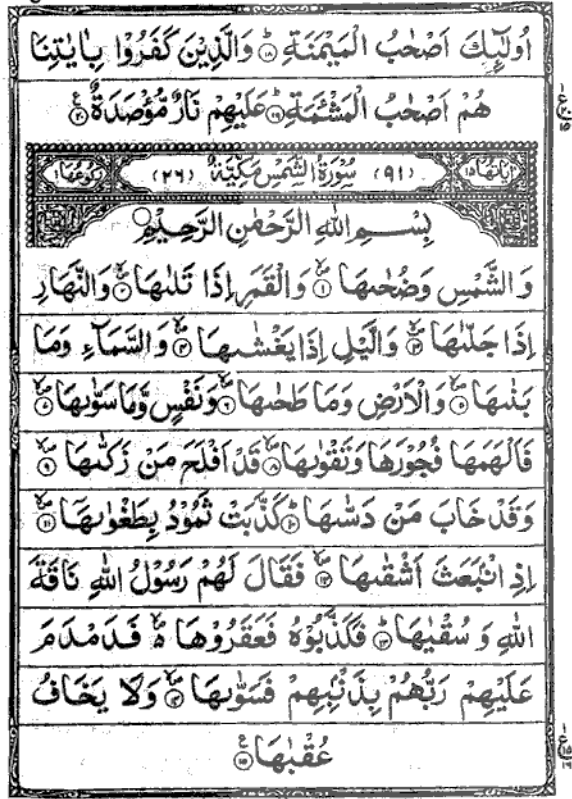 اُولٰٓئِكَ اَصْحٰبُ الْمَيْمَنَةِ ؕ﴿۱۸﴾ وَالَّذِيْنَ كَفَرُوْا بِاٰيٰتِنَا
هُمْ اَصْحٰبُ الْمَشْئَمَةِ ؕ﴿۱۹﴾ عَلَيْهِمْ نَارٌ مُّؤْصَدَةٌ ﴿۲۰﴾
اٰيَاتُهَا ۱۵ (۹۱) سُوْرَةُ الشَّمْسِ مَكِّيَّةٌ (۲۶) رُكُوْعُهَا ۱
بِسْمِ اللّٰهِ الرَّحْمٰنِ الرَّحِيْمِ
وَالشَّمْسِ وَضُحٰىهَا ﴿۱﴾ وَالْقَمَرِ اِذَا تَلٰىهَا ﴿۲﴾ وَالنَّهَارِ
اِذَا جَلّٰىهَا ﴿۳﴾ وَالَّيْلِ اِذَا يَغْشٰىهَا ﴿۴﴾ وَالسَّمَآءِ وَمَا
بَنٰىهَا ﴿۵﴾ وَالْاَرْضِ وَمَا طَحٰىهَا ﴿۶﴾ وَنَفْسٍ وَّمَا سَوّٰىهَا ﴿۷﴾
فَاَلْهَمَهَا فُجُوْرَهَا وَتَقْوٰىهَا ﴿۸﴾ قَدْ اَفْلَحَ مَنْ زَكّٰىهَا ﴿۹﴾
وَقَدْ خَابَ مَنْ دَسّٰىهَا ؕ﴿۱۰﴾ كَذَّبَتْ ثَمُوْدُ بِطَغْوٰىهَا ﴿۱۱﴾
اِذِ انْۢبَعَثَ اَشْقٰىهَا ﴿۱۲﴾ فَقَالَ لَهُمْ رَسُوْلُ اللّٰهِ نَاقَةَ
اللّٰهِ وَ سُقْيٰهَا ؕ﴿۱۳﴾ فَكَذَّبُوْهُ فَعَقَرُوْهَا فَدَمْدَمَ
عَلَيْهِمْ رَبُّهُمْ بِذَنْۢبِهِمْ فَسَوّٰىهَا ﴿۱۴﴾ وَلَا يَخَافُ
عُقْبٰهَا ﴿۱۵﴾